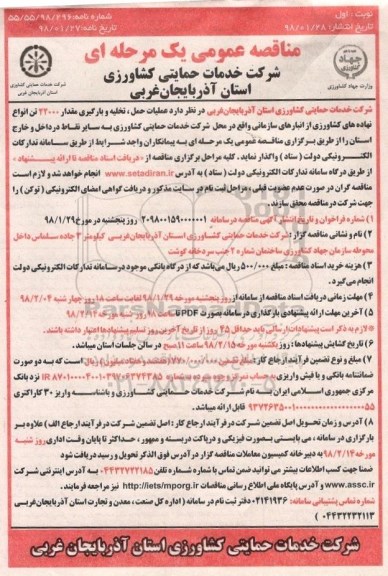 نوبت : اول
شماره نامه: ۵۵/۵۵/۹۸/۲۹۶
تاریخ انتشار: ۹۸/۰۱/۲۸
تاریخ نامه: ۹۸/۰۱/۲۷
مناقصه عمومی یک مرحله ای
شرکت خدمات حمایتی کشاورزی
استان آذربایجان‌غربی
جهاد کشاورزی
وزارت جهاد کشاورزی
شرکت خدمات حمایتی کشاورزی
استان آذربایجان غربی
شرکت خدمات حمایتی کشاورزی استان آذربایجان‌غربی در نظر دارد عملیات حمل، تخلیه و بارگیری مقدار ۲۲۰۰۰ تن انواع
نهاده های کشاورزی از انبارهای سازمانی واقع در محل شرکت خدمات حمایتی کشاورزی به سایر نقاط در داخل و خارج
استان را از طریق برگزاری مناقصه عمومی یک مرحله ای به پیمانکاران واجد شرایط از طریق سامانه تدارکات
الکترونیکی دولت ( ستاد ) واگذار نماید. کلیه مراحل برگزاری مناقصه از « دریافت اسناد مناقصه تا ارائه پیشنهاد »
از طریق درگاه سامانه تدارکات الکترونیکی دولت ( ستاد ) به آدرس www.setadiran.ir انجام خواهد شد و لازم است
مناقصه گران در صورت عدم عضویت قبلی ، مراحل ثبت نام در سایت مذکور و دریافت گواهی امضای الکترونیکی ( توکن ) را
جهت شرکت در مناقصه محقق سازند.
۱) شماره فراخوان و تاریخ انتشار آگهی مناقصه در سامانه ۲۰۹۸۰۰۱۵۹۰۰۰۰۰۰۱ روز پنجشنبه در مورخ ۹۸/۱/۲۹
۲) نام و نشانی مناقصه گزار: شرکت خدمات حمایتی کشاورزی استان آذربایجان‌غربی کیلومتر ۳ جاده سلماس داخل
محوطه سازمان جهاد کشاورزی ساختمان شماره ۲ جنب سردخانه گوشت
۳) هزینه خرید اسناد مناقصه : مبلغ ۵۰۰/۰۰۰ ریال می‌باشد که از درگاه بانکی موجود در سامانه تدارکات الکترونیکی دولت
انجام می‌گیرد.
۴) مهلت زمانی دریافت اسناد مناقصه از سامانه از روز پنجشنبه مورخه ۹۸/۱/۲۹ لغایت ساعت ۱۸ روز چهار شنبه ۹۸/۲/۰۴
۵) آخرین مهلت ارائه پیشنهادی بارگذاری در سامانه بصورت PDF تا ساعت ۱۸ روز شنبه مورخ ۹۸/۲/۱۴
※ لازم به ذکر است پیشنهادات ارسالی باید حداقل ۴۵ روز از تاریخ آخرین روز تسلیم پیشنهادها اعتبار داشته باشند.
۶) تاریخ گشایش پیشنهادها : روز یکشنبه مورخه ۹۸/۲/۱۵ ساعت ۱۱ صبح در سالن جلسات استان میباشد.
ضمانتنامه بانکی و یا فیش واریزی
مرکزی جمهوری اسلامی ایران به نام شرکت خدمات حمایتی کشاورزی و باشناسه واریز ۳۰ کاراکتری
قابل ارائه میباشد.
۸) آدرس و زمان تحویل اصل تضمین شرکت در فرآیند ارجاع کار : اصل تضمین شرکت در فرآیند ارجاع کار (پاکت الف) علاوه بر
بارگزاری در سامانه ، می بایستی بصورت فیزیکی و درپاکت دربسته و ممهور ، حداکثر تا پایان وقت اداری روز شنبه
مورخه ۹۸/۲/۱۴ به دبیرخانه کمیسیون معاملات مناقصه گزار در آدرس فوق الذکر تحویل و رسید دریافت شود
ضمنا جهت کسب اطلاعات بیشتر می توانید ضمن تماس با شماره تلفن ۰۴۴۳۲۷۲۲۱۸۵ به آدرس اینترنتی شرکت
www.assc.ir و آدرس پایگاه ملی اطلاع رسانی مناقصات http://iets/mporg.ir نیز مراجعه فرمایند.
شماره تماس پشتیبانی سامانه: ۰۲۱۴۱۹۳۶ دفتر ثبت نام در سامانه ( اداره کل صنعت ، معدن و تجارت استان آذربایجان‌غربی
۰۴۴۳۲۲۳۲۱۱۳ )
شرکت خدمات حمایتی کشاورزی استان آذربایجان غربی